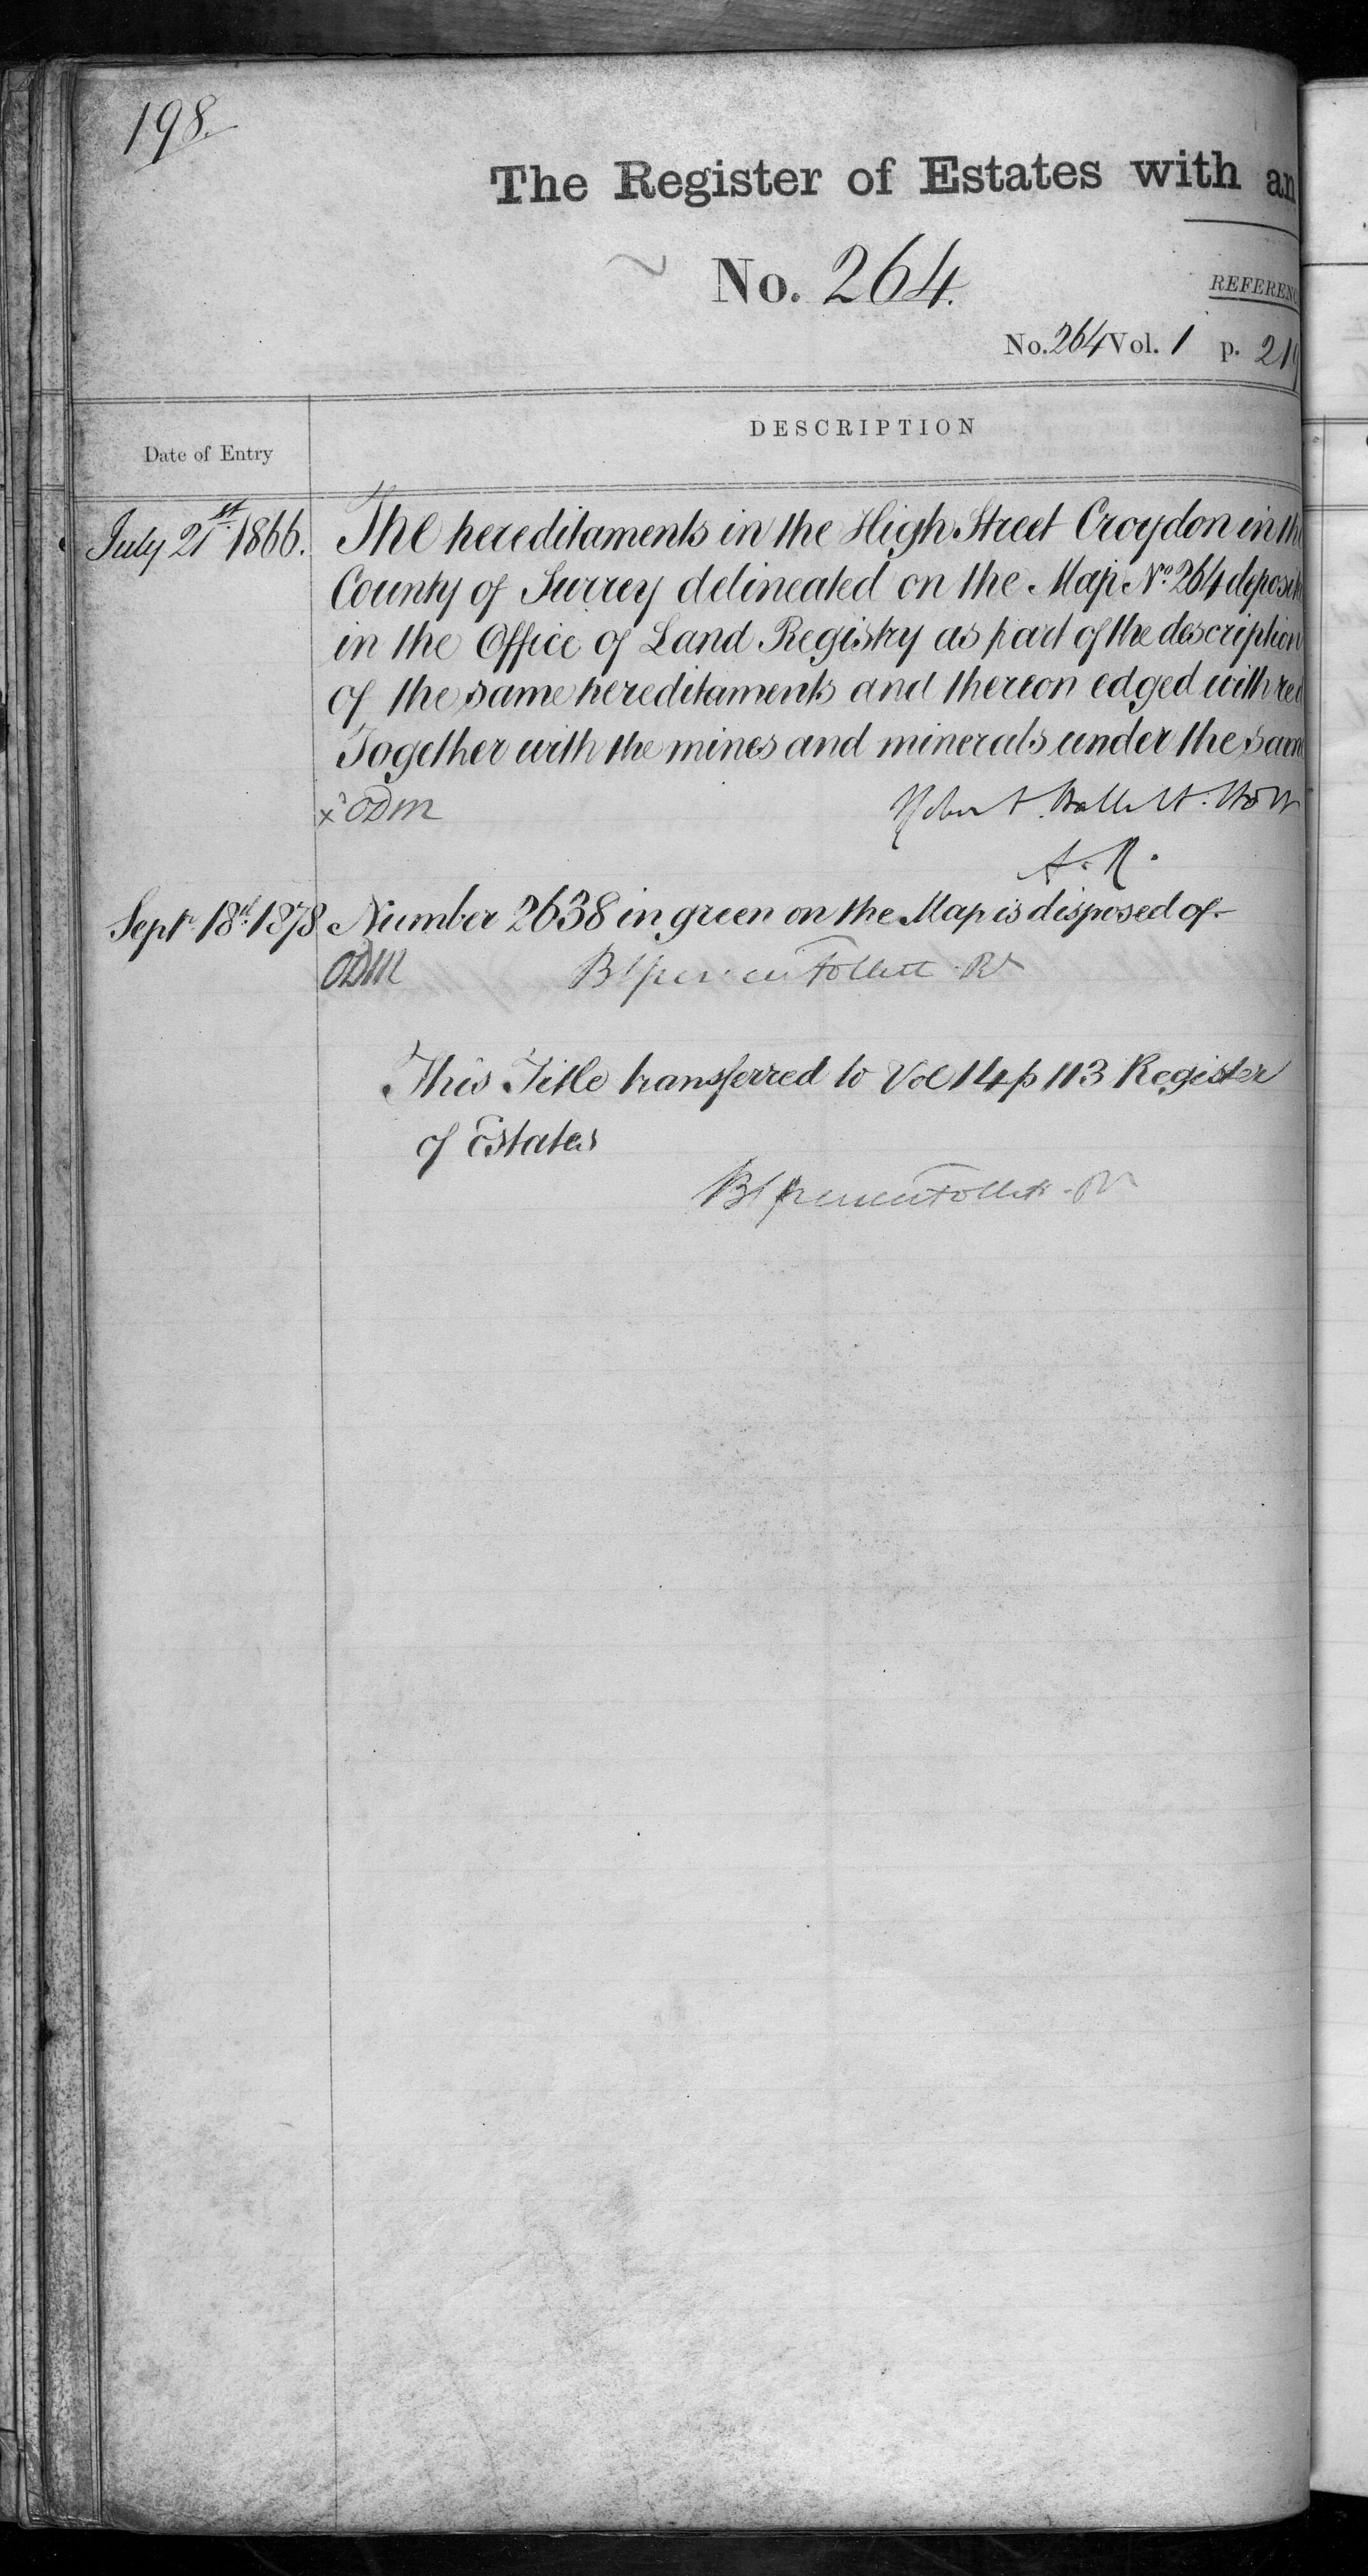 198.
The Register of Estates with an
No. 264.
REFERENC
No. 264 Vol. 1 p. 219
Date of Entry
DESCRIPTION
July 21st 1866. The hereditaments in the High Street Croydon in the
County of Surrey delineated on the Map No. 264 deposite
in the Office of Land Registry as part of the description
of the same hereditaments and thereon edged with red
Together with the mines and minerals under the same
x ODM Robert Hallett Holt
A. R.
Sept. 18th 1878 Number 2638 in green on the Map is disposed of
ODM BSpencer Follett Rr
This Title transferred to Vol 14 p 113 Register
of Estates
BSpencer Follett Rr